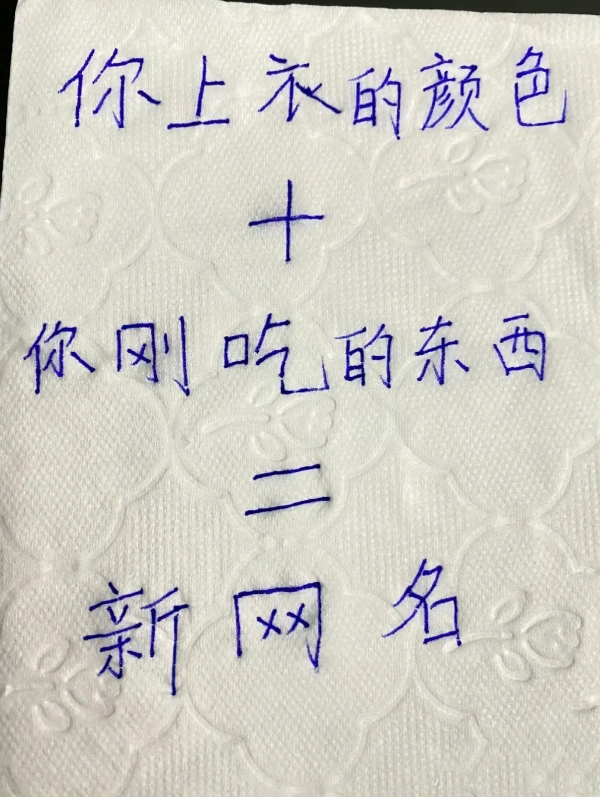 你上衣的颜色
+
你刚吃的东西
=
新网名